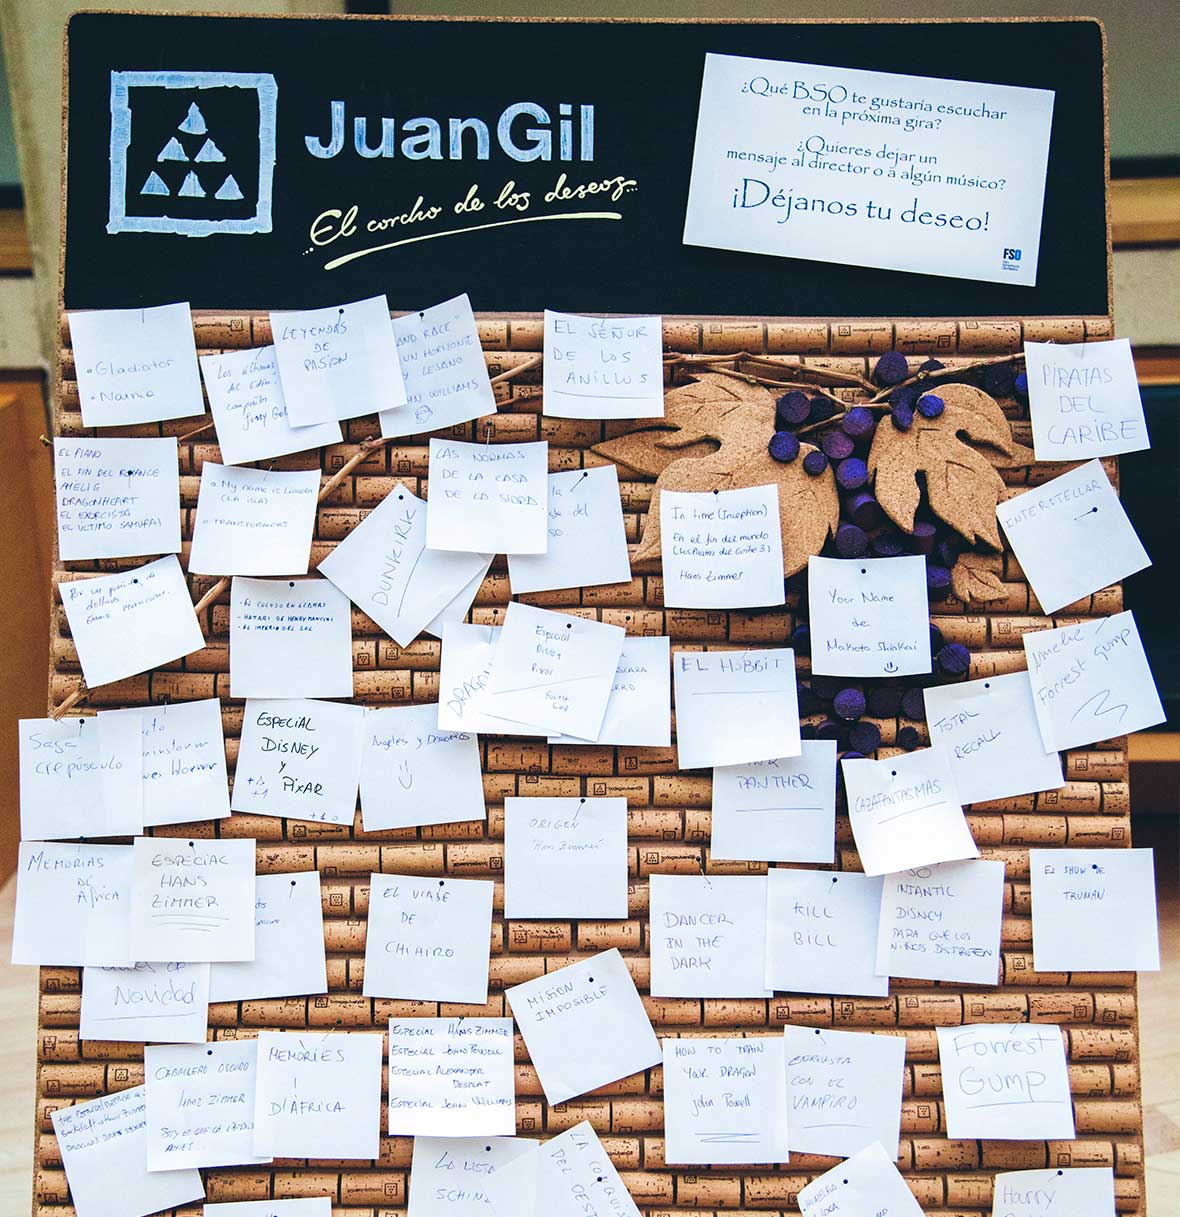 JuanGil
...El corcho de los deseos...
¿Qué BSO te gustaría escuchar
en la próxima gira?
¿Quieres dejar un
mensaje al director o a algún músico?
¡Déjanos tu deseo!
FSO
• Gladiator
• Narnia
Los últimos
del Edén
compositor
Jerry
LEYENDAS
DE
PASIÓN
AND RACE"
UN HORIZONTE
MUY LEJANO
JOHN WILLIAMS
EL SEÑOR
DE LOS
ANILLOS
PIRATAS
DEL
CARIBE
EL PIANO
EL FIN DEL ROMANCE
AMELIE
DRAGONHEART
EL EXORCISTA
EL ÚLTIMO SAMURAI
o My name is Lincoln
(LA ISLA)
o TRANSFORMERS
DUNKIRK
LAS NORMAS
DE LA CASA
DE LA SIDRA
la
del
In time (Inception)
En el fin del mundo
(Los Piratas del Caribe 3)
Hans Zimmer
INTERSTELLAR
Por un puñado de
dólares.
Ennio Morricone.
- EL COLOSO EN LLAMAS
- HATARI DE HENRY MANCINI
- EL IMPERIO DEL SOL
Your Name
de
Makoto Shinkai
DRAGON
Especial
Disney
Pixar
Forrest
Gump
EL HOBBIT
Amelie
Forrest Gump
TOTAL
RECALL
Saga
crepúsculo
ESPECIAL
DISNEY
y
PIXAR
+1
+1
+1
Angeles y Demonios
PANTHER
CAZAFANTASMAS
ORIGEN
"Hans Zimmer"
MEMORIAS
DE
África
ESPECIAL
HANS
ZIMMER
Navidad
EL VIAJE
DE
CHIHIRO
DANCER
IN THE
DARK
KILL
BILL
INFANTIL
DISNEY
PARA QUE LOS
NIÑOS DISFRUTEN
EL SHOW DE
TRUMAN
MISION
IMPOSIBLE
CABALLERO OSCURO
HANZ ZIMMER
MEMÒRIES
D'ÀFRICA
ESPECIAL HANS ZIMMER
ESPECIAL JOHN POWELL
ESPECIAL ALEXANDER
DESPLAT
ESPECIAL JOHN WILLIAMS
HOW TO TRAIN
YOUR DRAGON
John Powell
ENTREVISTA
CON EL
VAMPIRO
Forrest
Gump
LA LISTA
SCHIN
LA CONQUIS
DEL OESTE
Harry